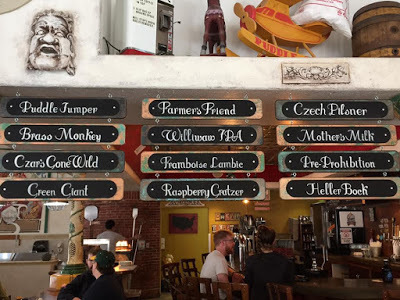 Puddle Jumper
Brass Monkey
Czars Gone Wild
Green Giant
Farmer's Friend
Williwaw IPA
Framboise Lambic
Raspberry Gratzer
Czech Pilsner
Mother's Milk
Pre-Prohibition
Heller Bock